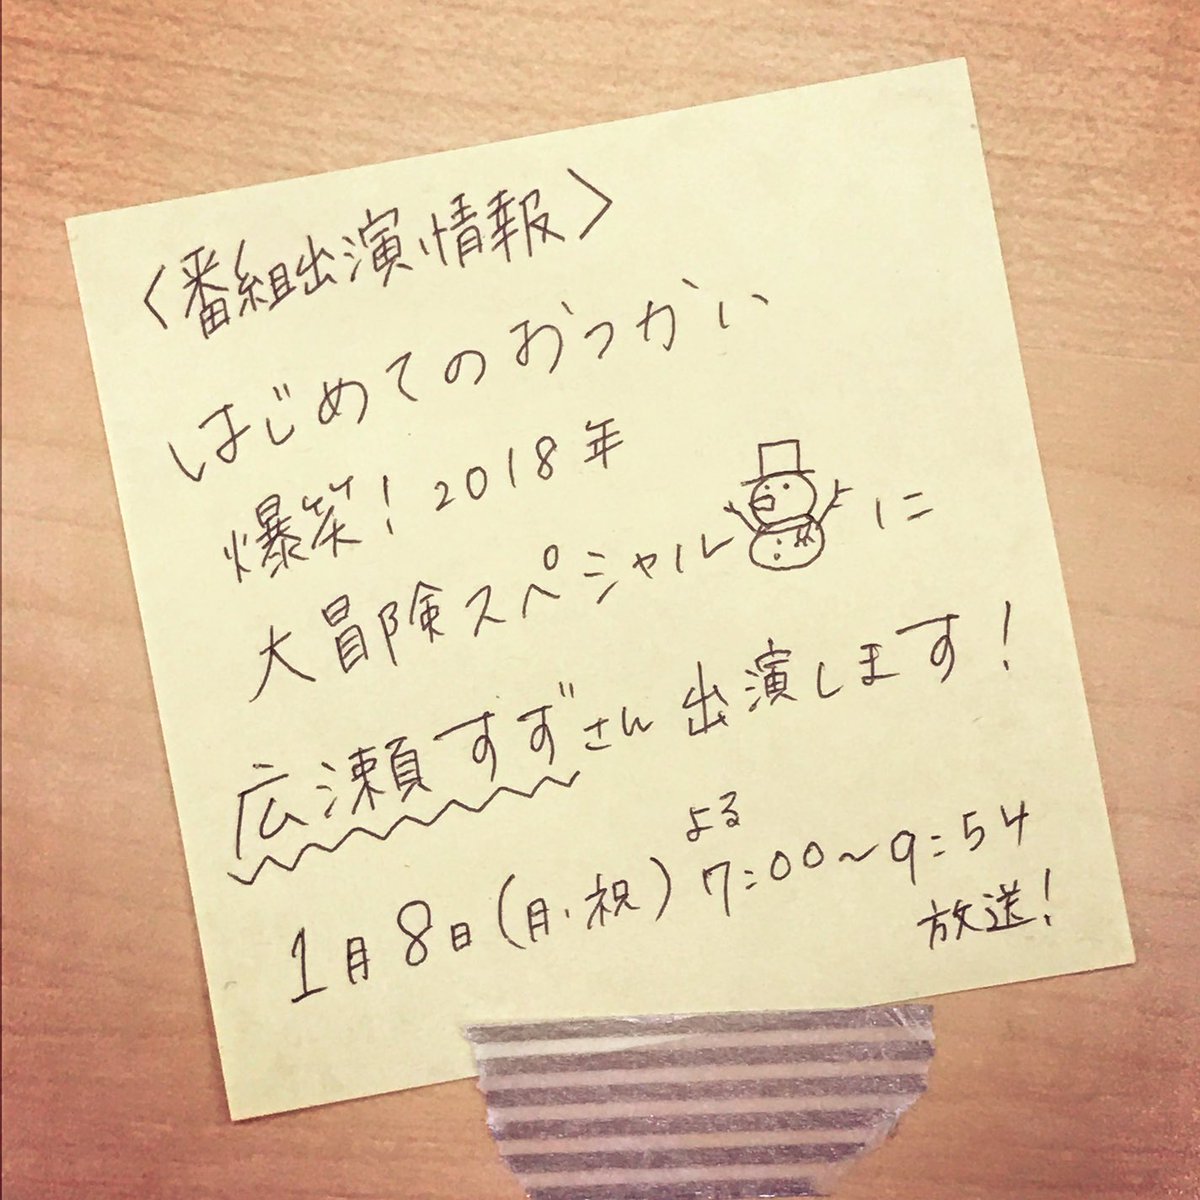 〈番組出演情報〉
はじめてのおつかい
爆笑!2018年
大冒険スペシャルに
広瀬すずさん出演します!
よる
1月8日(月・祝)7:00~9:54
放送!